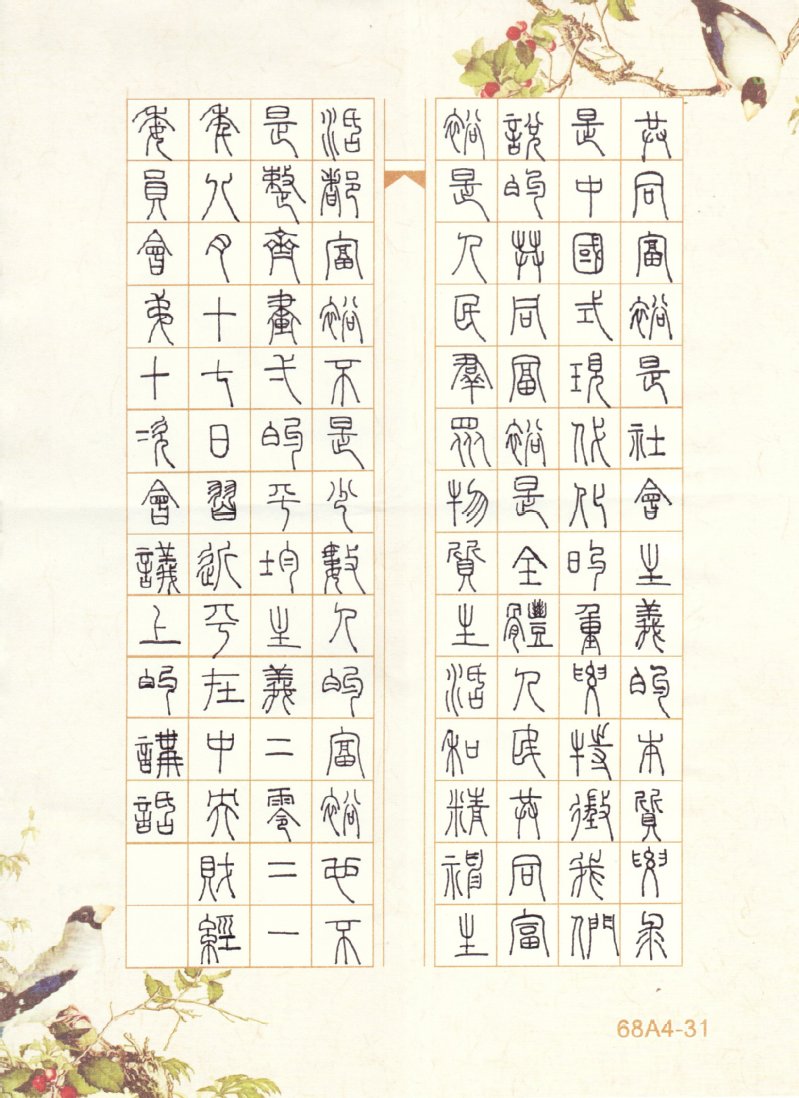 共同富裕是社會主義的本質要求
是中國式現代化的重要特徵我們
說的共同富裕是全體人民共同富
裕是人民羣眾物質生活和精神生
活都富裕不是少數人的富裕也不
是整齊畫弌的平均主義二零二一
年八月十七日習近平在中央財經
委員會弟十次會議上的講話
68A4-31